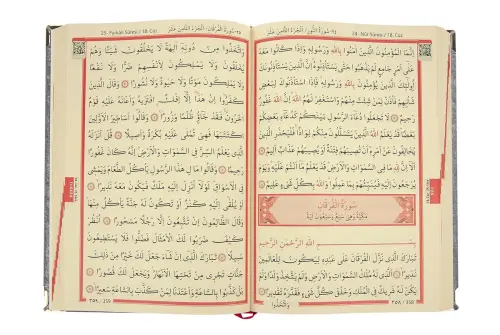 24- Nûr Sûresi / 18. Cüz
٢٤ سُورَةُ النُّورِ، اَلْجُزْءُ الثَّامِنَ عَشَرَ
اِنَّمَا الْمُؤْمِنُونَ الَّذِينَ اٰمَنُوا بِاللّٰهِ وَرَسُولِهِ وَاِذَا كَانُوا مَعَهُ
عَلٰٓى اَمْرٍ جَامِعٍ لَمْ يَذْهَبُوا حَتّٰى يَسْتَأْذِنُوهُ اِنَّ الَّذِينَ يَسْتَأْذِنُونَكَ
اُو۬لٰٓئِكَ الَّذِينَ يُؤْمِنُونَ بِاللّٰهِ وَرَسُولِهِ فَاِذَا اسْتَأْذَنُوكَ لِبَعْضِ
شَأْنِهِمْ فَأْذَنْ لِمَنْ شِئْتَ مِنْهُمْ وَاسْتَغْفِرْ لَهُمُ اللّٰهَ اِنَّ اللّٰهَ غَفُورٌ
رَحِيمٌ لَا تَجْعَلُوا دُعَاءَ الرَّسُولِ بَيْنَكُمْ كَدُعَاءِ بَعْضِكُمْ
بَعْضًا قَدْ يَعْلَمُ اللّٰهُ الَّذِينَ يَتَسَلَّلُونَ مِنْكُمْ لِوَاذًا فَلْيَحْذَرِ الَّذِينَ
يُخَالِفُونَ عَنْ اَمْرِهِ اَنْ تُصِيبَهُمْ فِتْنَةٌ اَوْ يُصِيبَهُمْ عَذَابٌ اَلِيمٌ اَلَا
اِنَّ لِلّٰهِ مَا فِي السَّمٰوَاتِ وَالْاَرْضِ قَدْ يَعْلَمُ مَا اَنْتُمْ عَلَيْهِ وَيَوْمَ
يُرْجَعُونَ اِلَيْهِ فَيُنَبِّئُهُمْ بِمَا عَمِلُوا وَاللّٰهُ بِكُلِّ شَيْءٍ عَلِيمٌ
سُورَةُ الْفُرْقَانِ
مَكِّيَّةٌ وَهِيَ سَبْعٌ وَسَبْعُونَ اٰيَةً
بِسْمِ اللّٰهِ الرَّحْمٰنِ الرَّحِيمِ
تَبَارَكَ الَّذِي نَزَّلَ الْفُرْقَانَ عَلٰى عَبْدِهِ لِيَكُونَ لِلْعَالَمِينَ
نَذِيرًا اَلَّذِي لَهُ مُلْكُ السَّمٰوَاتِ وَالْاَرْضِ وَلَمْ يَتَّخِذْ وَلَدًا وَلَمْ
يَكُنْ لَهُ شَرِيكٌ فِي الْمُلْكِ وَخَلَقَ كُلَّ شَيْءٍ فَقَدَّرَهُ تَقْدِيرًا
وَاتَّخَذُوا
٣٥٨ / 358
25- Furkân Sûresi / 18. Cüz
٢٥ سُورَةُ الْفُرْقَانِ، اَلْجُزْءُ الثَّامِنَ عَشَرَ
وَاتَّخَذُوا مِنْ دُونِهِ اٰلِهَةً لَا يَخْلُقُونَ شَيْـًٔا وَهُمْ
يُخْلَقُونَ وَلَا يَمْلِكُونَ لِاَنْفُسِهِمْ ضَرًّا وَلَا نَفْعًا
وَلَا يَمْلِكُونَ مَوْتًا وَلَا حَيٰوةً وَلَا نُشُورًا وَقَالَ الَّذِينَ
كَفَرُوا اِنْ هٰذَا اِلَّا اِفْكٌ افْتَرٰيهُ وَاَعَانَهُ عَلَيْهِ قَوْمٌ
اٰخَرُونَ فَقَدْ جَاؤُ ظُلْمًا وَزُورًا وَقَالُوا اَسَاطِيرُ الْاَوَّلِينَ
اكْتَتَبَهَا فَهِيَ تُمْلٰى عَلَيْهِ بُكْرَةً وَاَصِيلًا قُلْ اَنْزَلَهُ
الَّذِي يَعْلَمُ السِّرَّ فِي السَّمٰوَاتِ وَالْاَرْضِ اِنَّهُ كَانَ غَفُورًا
رَحِيمًا وَقَالُوا مَالِ هٰذَا الرَّسُولِ يَأْكُلُ الطَّعَامَ وَيَمْشِي
فِي الْاَسْوَاقِ لَوْلَا اُنْزِلَ اِلَيْهِ مَلَكٌ فَيَكُونَ مَعَهُ نَذِيرًا
اَوْ يُلْقٰى اِلَيْهِ كَنْزٌ اَوْ تَكُونُ لَهُ جَنَّةٌ يَأْكُلُ مِنْهَا
وَقَالَ الظَّالِمُونَ اِنْ تَتَّبِعُونَ اِلَّا رَجُلًا مَسْحُورًا اُنْظُرْ
كَيْفَ ضَرَبُوا لَكَ الْاَمْثَالَ فَضَلُّوا فَلَا يَسْتَطِيعُونَ
سَبِيلًا تَبَارَكَ الَّذِي اِنْ شَاءَ جَعَلَ لَكَ خَيْرًا مِنْ ذٰلِكَ
جَنَّاتٍ تَجْرِي مِنْ تَحْتِهَا الْاَنْهَارُ وَيَجْعَلْ لَكَ قُصُورًا
بَلْ كَذَّبُوا بِالسَّاعَةِ وَاَعْتَدْنَا لِمَنْ كَذَّبَ بِالسَّاعَةِ سَعِيرًا
٣٥٩ / 359